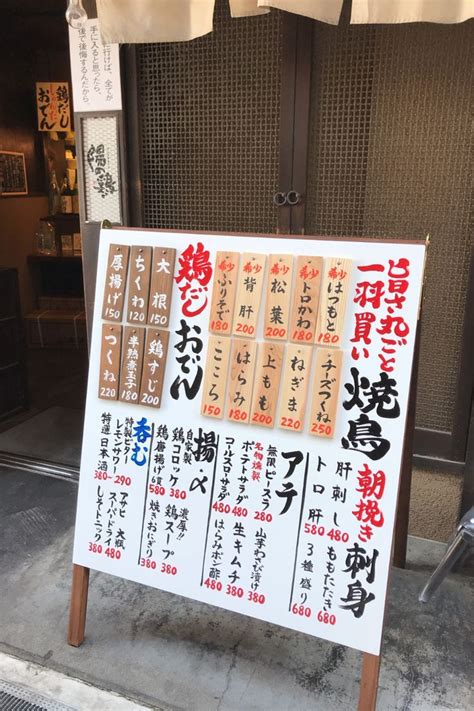 に行けば、全てが
手に入ると思ったら、
後で後悔するんだから、
鶏だし
おでん
陽の鶏
旨さ丸ごと
一羽買い
焼鳥
希少 はつもと 180
希少 トロかわ 180
希少 松葉 200
希少 背肝 200
希少 ふりそで 180
チーズつくね 250
ねぎま 220
上もも 200
はらみ 180
こころ 150
鶏だしおでん
大根 150
ちくわ 120
厚揚げ 150
鶏すじ 200
半熟煮玉子 180
つくね 220
朝挽き
刺身
肝刺し 480
トロ肝 580
ももたたき 680
3種盛り 680
アテ
無限ピースラ 280
名物燻製
ポテトサラダ 480
コールスローサラダ 480
山芋わさび漬け 380
生キムチ 380
はらみポン酢 480
揚・〆
自家製
鶏コロッケ 380
鶏唐揚げ 580
濃厚!!
鶏スープ 380
焼きおにぎり 380
呑む
特製ビター
レモンサワー 290
特選日本酒 380~
アサヒ 大瓶
スーパードライ 480
しそトニック 380